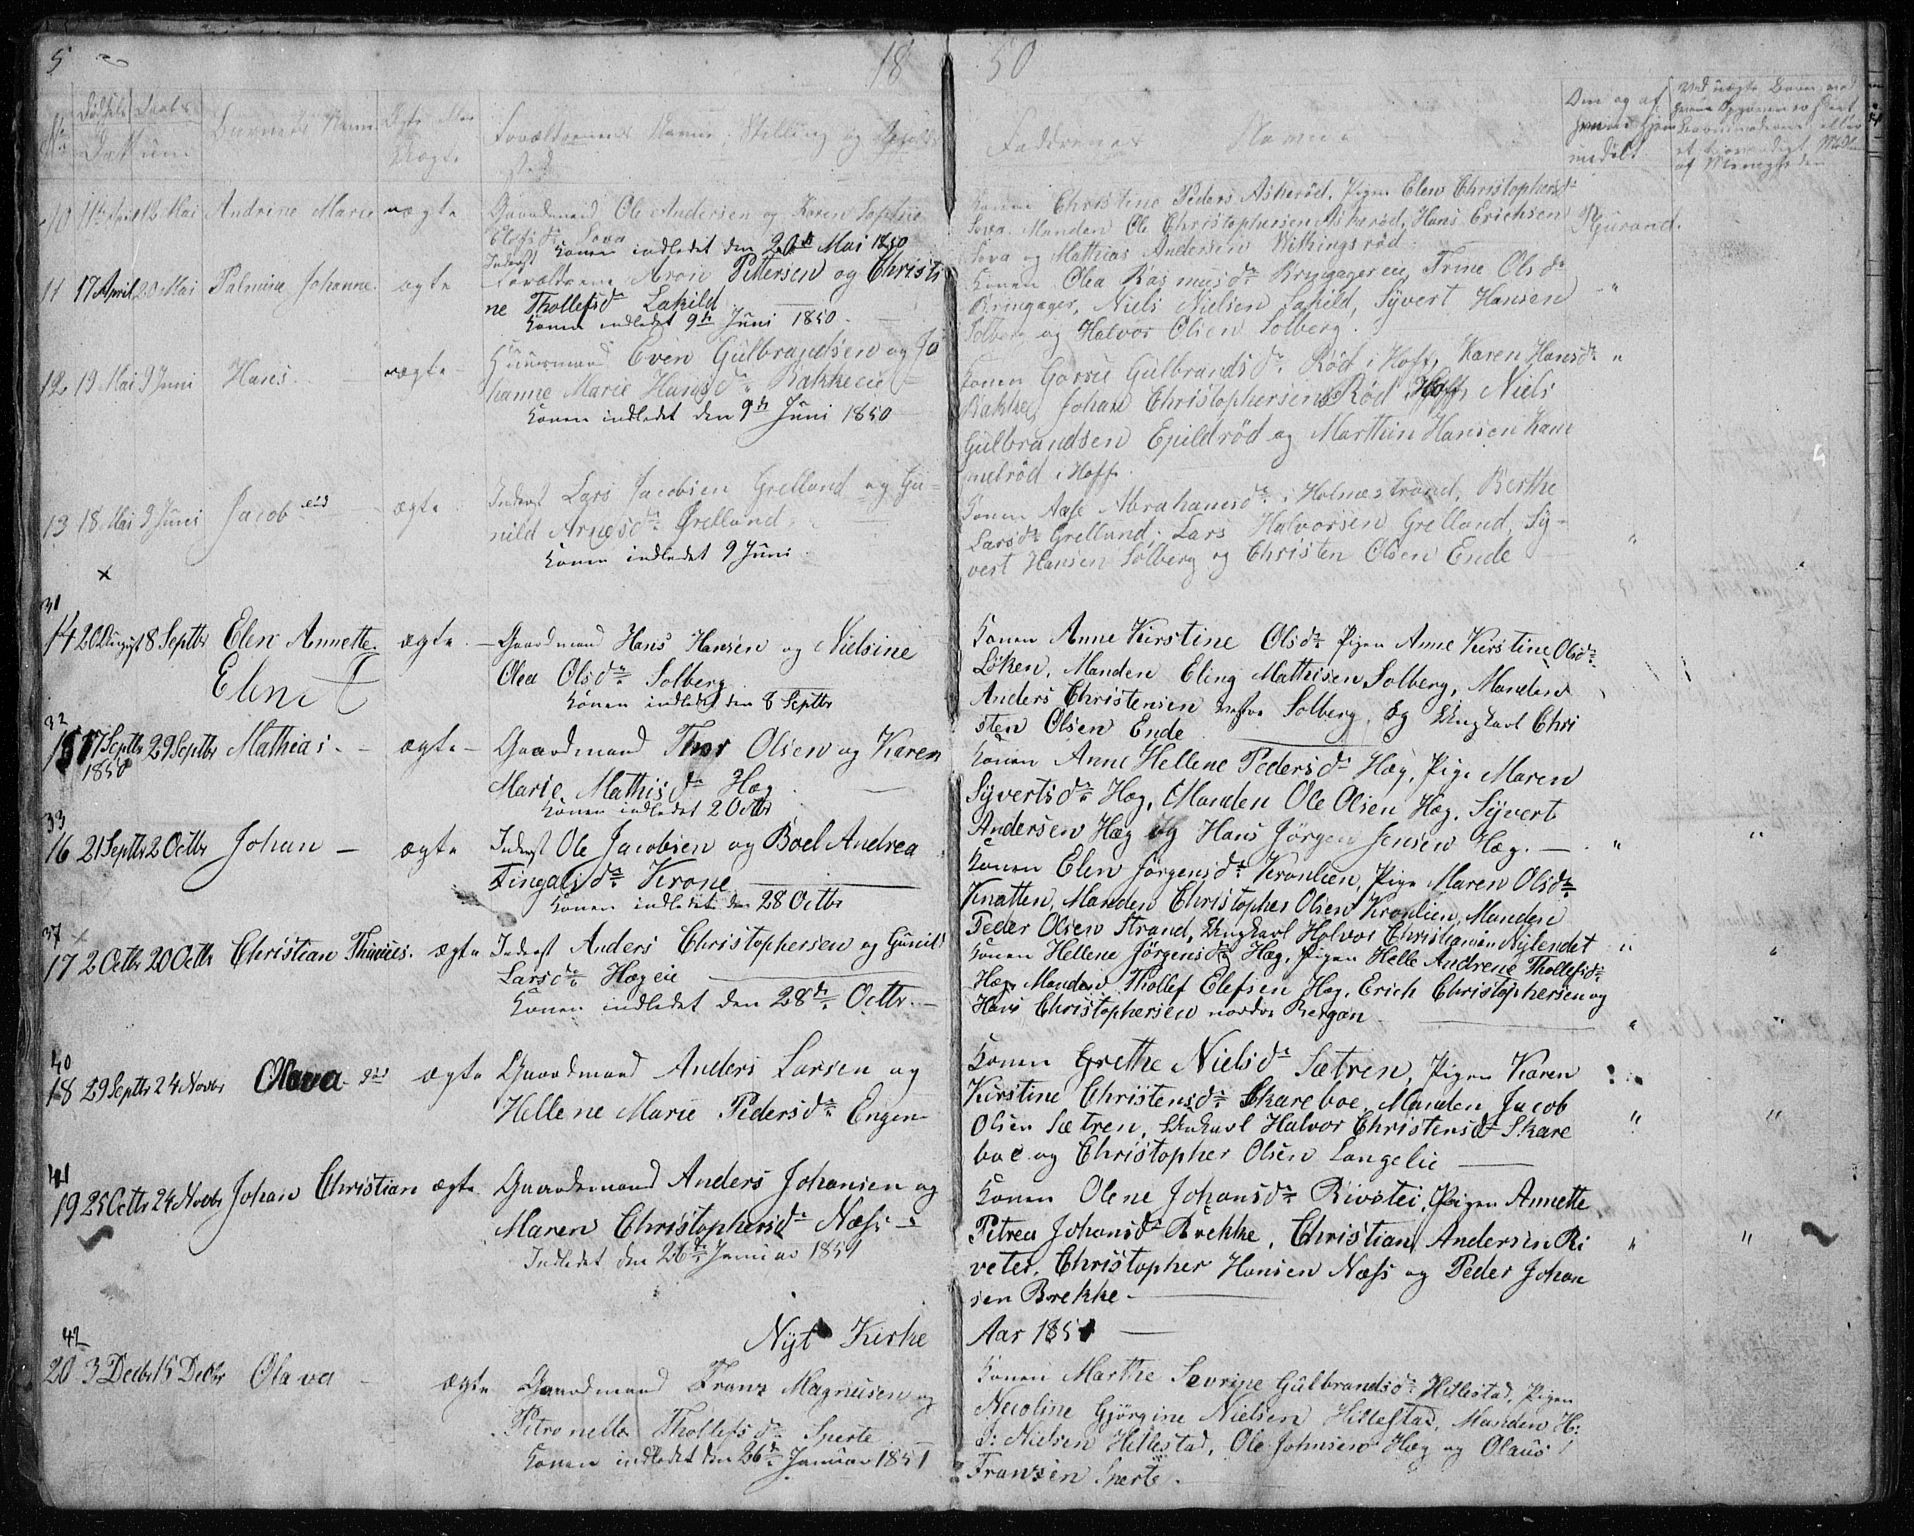 5
18 50
No
Fødsels Daabs
Datum
Barnets Navn
Ægte eller
Uægte
Forældrenes Navne, Stilling og Opholds
sted
Faddernes Navne
Om og af
hvem hjem
medøbt
10 11te April 12 Mai Andrine Marie uægte Gaardmand Ole Andersen og Karen Sophie
Sova
Konen indledet den 20de Mai 1850
Konen Christine Peders Askerød, Pigen Elen Christophersdr
Sova, Manden Ole Christophersen Askerød, Hans Erichsen
Sova og Mathias Andersen Withingsrød
11 17 April 20 Mai Palmine Johanne ægte Forældrene Aron Pettersen og Christi
ne Thollefsdr Lakild
Konen indledet 9de Juni 1850
Konen Olea Rasmusdr Bringagereie, Trine Olsdr
Bringager, Niels Nielsen Lakild, Syvert Hansen
Solberg og Halvor Olsen Solberg.
12 19 Mai 9 Juni Hans ægte Huusmand Even Gulbrandsen og Jo
hanne Marie Hansdr Bakkeeie
Konen indledet den 9de Juni 1850
Konen Gorsie Gulbrandsdr Rød i Hoff, Karen Hansdr
Bakke, Johan Christophersen Rød Hoff, Niels
Gulbrandsen Epildrød og Marthin Hansen Kam
melrød i Hoff.
13 18 Mai 9 Juni Jacob ægte Inderst Lars Jacobsen Grelland og Gu-
nild Arnesdr Grelland
Konen indledet 9 Juni
Konen Aase Abrahamsdr i Holmestrand, Berthe
Larsdr Grelland, Lars Halvorsen Grelland, Sy-
vert Hansen Solberg og Christen Olsen Ende
x
31
14 20 August 8 Septbr Elen Annette ægte Gaardmand Hans Hansen og Nielsine
Olea Olsdr Solberg
Konen indledet den 8 Septbr
Konen Anne Kirstine Olsdr Pigen Anne Kirstine Olsdr
Løken, Manden Eling Mathisen Solberg, Manden
Anders Christensen Solberg, og Ungkarl Chri
sten Olsen Ende
32
15 17 Septbr 29 Septbr Mathias ægte Gaardmand Thor Olsen og Karen
1850
Marie Mathisdr Hæg
Konen indledet 2 Octbr
Konen Anne Hellene Pedersdr Hæg, Pige Maren
Syvertsdr Hæg, Manden Ole Olsen Hæg, Syvert
Andersen Hæg og Hans Jørgen Jensen Hæg.
33
16 21 Septbr 2 Octbr Johan ægte Inderst Ole Jacobsen og Boel Andrea
Fingalsdr Krone
Konen indledet den 28 Octbr
Konen Elen Jørgensdr Kronlien, Pige Maren Olsdr
Knatten, Manden Christopher Olsen Kronlien, Manden
Peder Olsen Strand, Ungkarl Halvor Christiansen Nylendet
37
17 2 Octbr 20 Octbr Christian ægte Inderst Anders Christophersen og Gunild
Larsdr Hægeie
Konen indledet den 28de Octbr.
Konen Hellene Jørgensdr Hæg, Pigen Helle Andrene Thollefsdr
Hæg, Manden Thollef Elefsen Hæg, Erich Christophersen og
Hans Christophersen nordre Bergan
40
18 29 Septbr 24 Novbr Olava ægte Gaardmand Anders Larsen og
Hellene Marie Pedersdr Engen
Konen Grethe Nielsdr Sætren, Pigen Karen
Kirstine Christensdr Skareboe, Manden Jacob
Olsen Sætren, Ungkarl Halvor Christensdr Skare
boe og Christopher Olsen Langelie
41
19 25 Octbr 24 Novbr Johan Christian ægte Gaardmand Anders Johansen og
Maren Christophersdr Næss
Indledet den 26de Januar 1851
Konen Olene Johansdr Rivetei, Pigen Annette
Petrea Johansdr Brekke, Christian Andersen Ri
vetei, Christopher Hansen Næss og Peder Johan
sen Brekke
Nyt Kirke Aar 1851
42
20 3 Decbr 15 Decbr Olava ægte Gaardmand Franz Magnusen og
Petronelle Thollefsdr Sperte
Konen indledet den 26de Januar 1851
Konen Marthe Sevrine Gulbrandsdr Hillestad, Pigen
Nicoline Gjørgine Nielsen Hillestad, Manden H:
J: Nielsen Hillestad, Ole Johnsen Hæg og Olaus
Franzen Sperte.